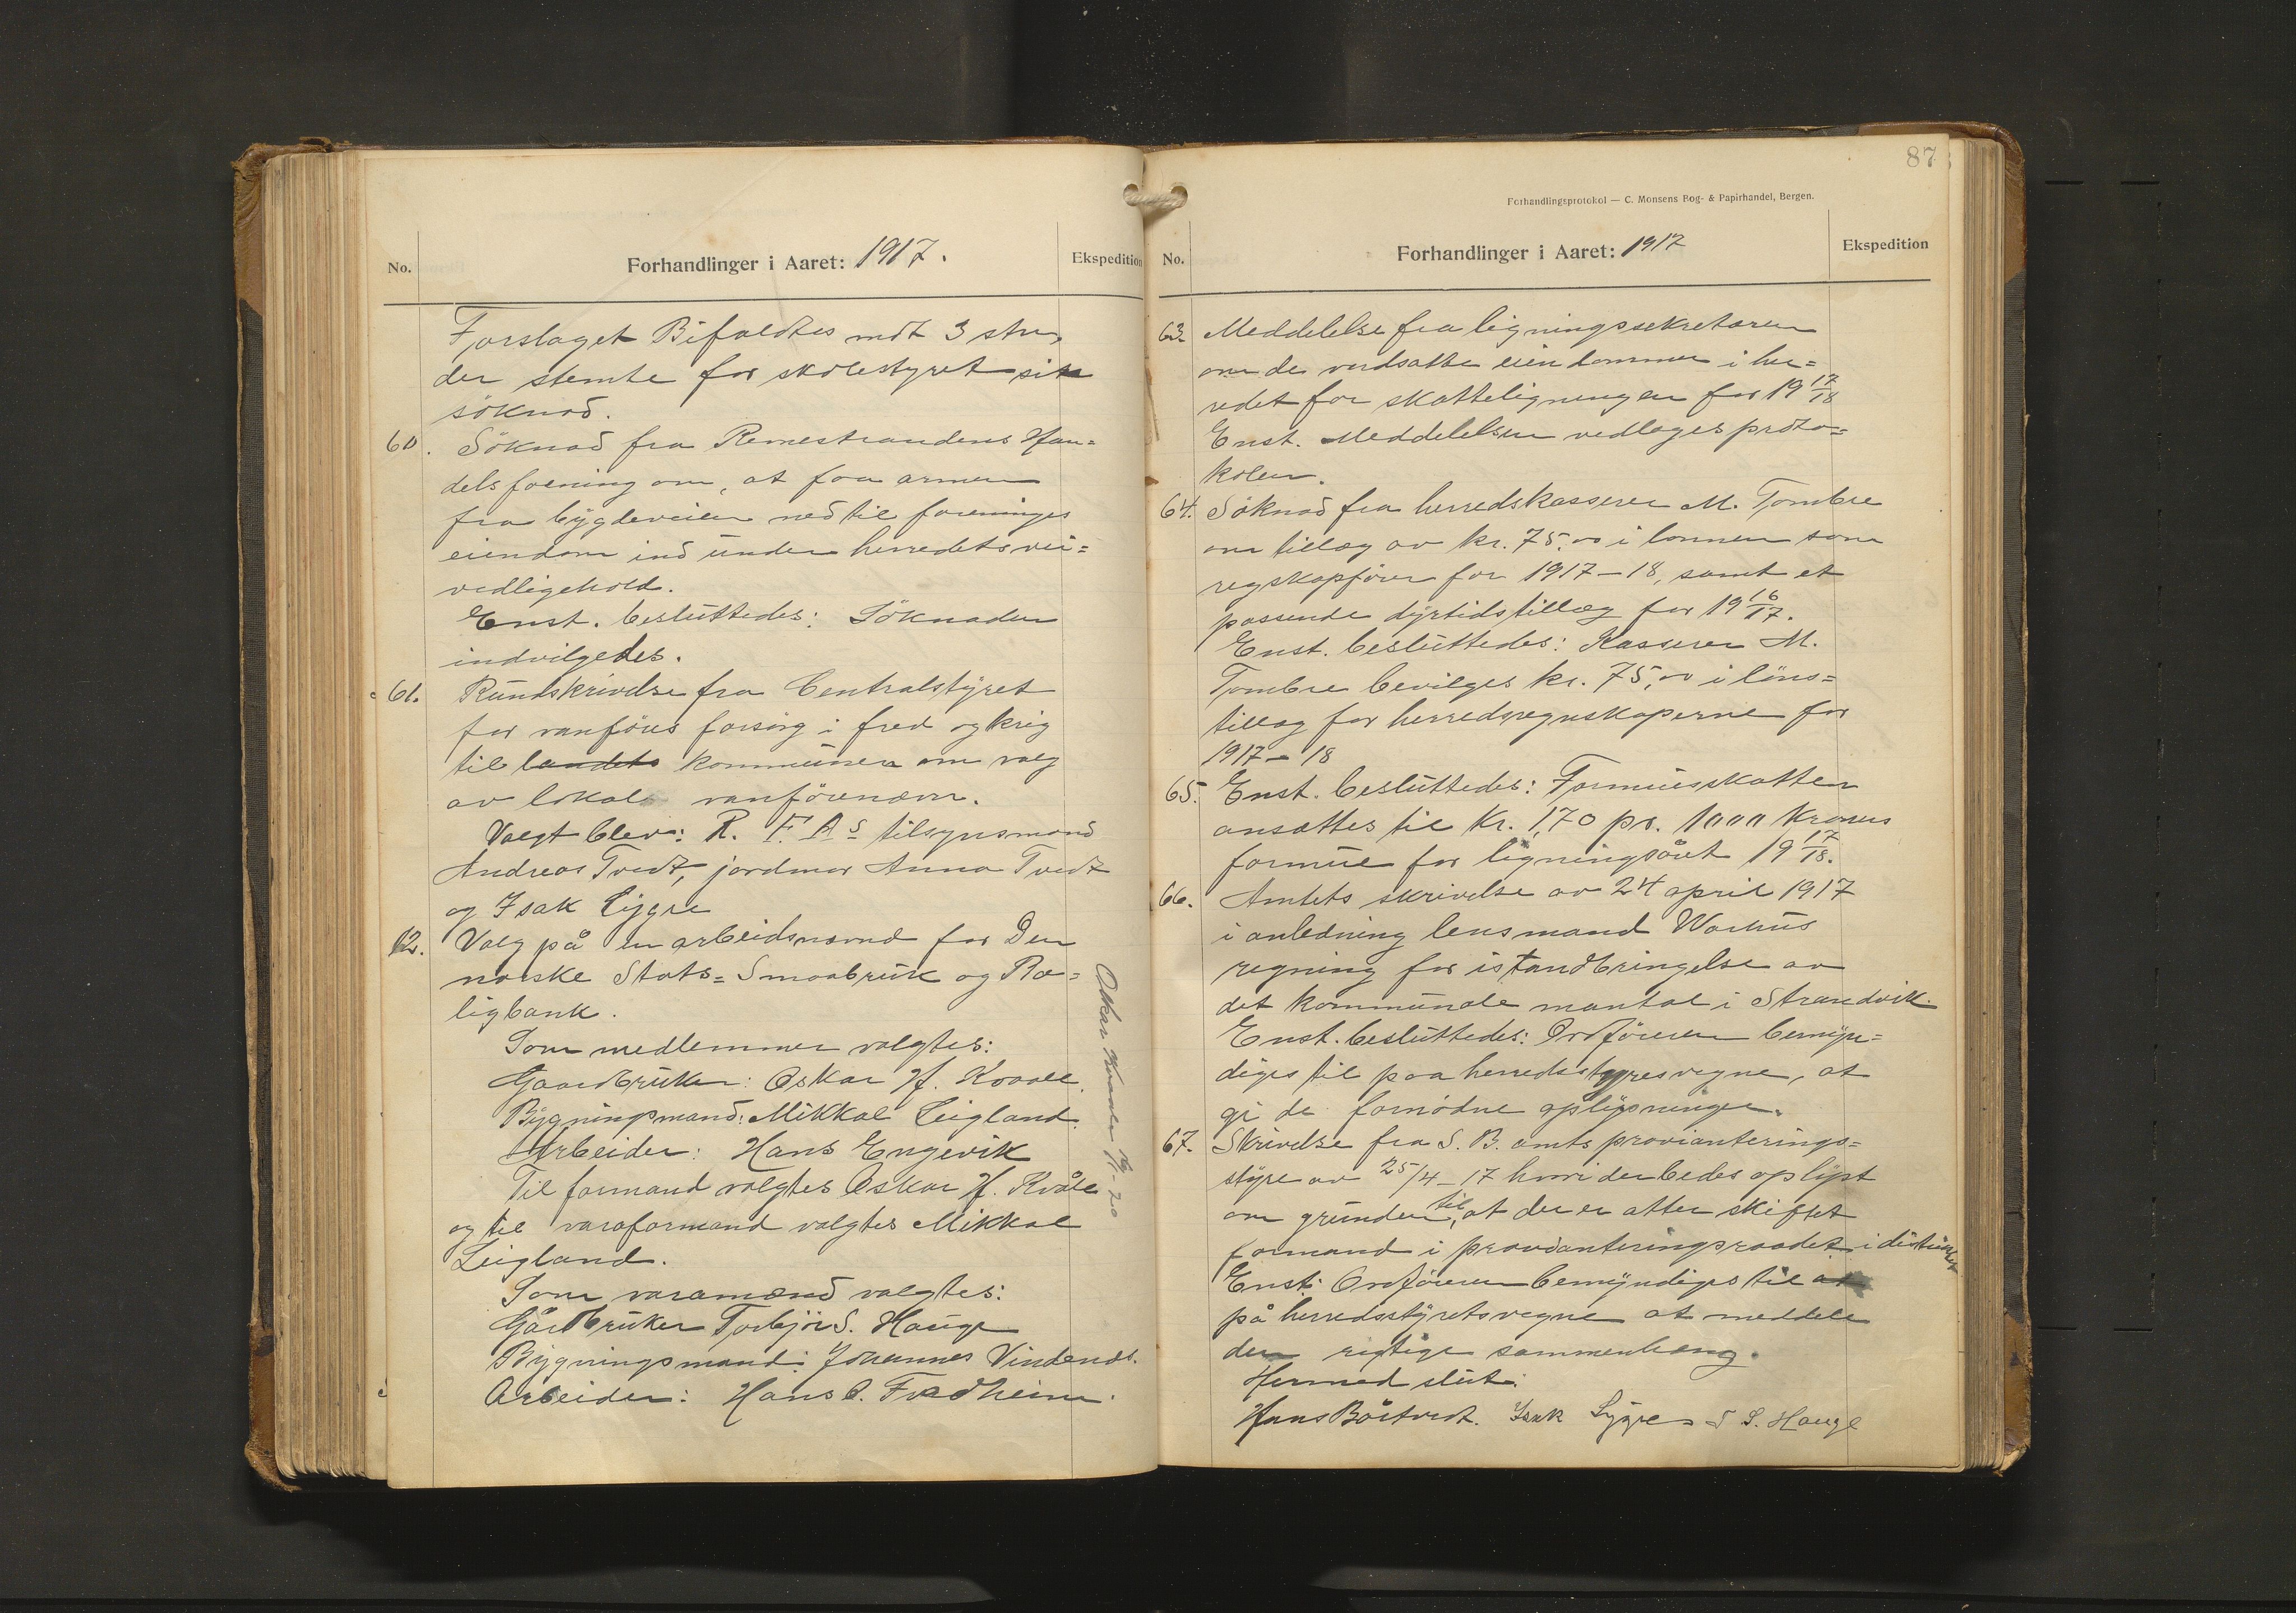 No.
Forhandlinger i Aaret: 1917.
Ekspedition
Forslaget Bifaldtes mot 3 stm.
der stemte for skolestyret sin
söknad.
60. Söknad fra Remestrandens Han=
delsforening om, at faa armen
fra bygdeveien ned til foreninges
eiendom ind under herredets vei=
vedligehold.
Enst. besluttedes: Söknaden
indvilgedes.
61. Rundskrivelse fra Centralstyret
for vanföres forsörg i fred og krig
til landets kommuner om valg
av lokale vanförenævn.
Valgt blev: R. F. As tilsynsmand
Andreas Tvedt, jordmor Anna Tvedt
og Isak Lygre
62. Valg på en arbeidsnævnd for Den
norske Stats=Smaabruk og Bo=
ligbank.
Som medlemmer valgtes:
Gaardbruker: Oskar H. Kvaale.
Bygningsmand: Mikkal Leigland.
Arbeider: Hans Engevik
Til formand valgtes Oskar H. Kvåle
og til varaformand valgtes Mikkal
Leigland.
Som varamænd valgtes:
Gårdbruker Torbjör S. Hauge
Bygningsmand: Johannes Vindenes.
Arbeider: Hans O. Fredheim.
Oskar Kvaale
87
Forhandlingsprotokol — C. Monsens Bog- & Papirhandel, Bergen.
No.
Forhandlinger i Aaret: 1917
Ekspedition
63. Meddelelse fra ligningssekretæren
om de verdsatte eiendommer i her=
redet for skatteligningen for 19 17/18
Enst. Meddelelsen vedlages proto=
kolen.
64. Söknad fra herredskasserer M. Tombre
om tillæg av kr. 75,00 i lönnen som
regskapförer for 1917-18, samt et
passende dyrtidstillæg for 19 16/17.
Enst. besluttedes: Kasserer M.
Tombre bevilges kr. 75,00 i löns=
tillæg for herredsregnskaperne for
1917-18
65. Enst. besluttedes: Formuesskatten
ansættes til Kr. 1,70 pr. 1000 Kroners
formue for ligningsåret 19 17/18.
66. Amtets skrivelse av 24 april 1917
i anledning lensmand Warhus
regning for istandbringelse av
det kommunale mantal i Strandvik.
Enst. besluttedes: Ordföreren bemyn=
diges til paa herredsstyres vegne, at
gi de fornödne oplysninger.
67. Skrivelse fra S. B. amts provianterings=
styre av 25/4-17 hvori der bedes oplyst
om grunden til, at der er atter skiftet
formand i provianteringsraadet i distriktet
Enst: Ordföreren bemyndiges til at
på herredsstyrets vegne at meddele
den rigtige sammenheng.
Hermed slut.
Hans Böstvedt. Isak Lygre T S. Hauge